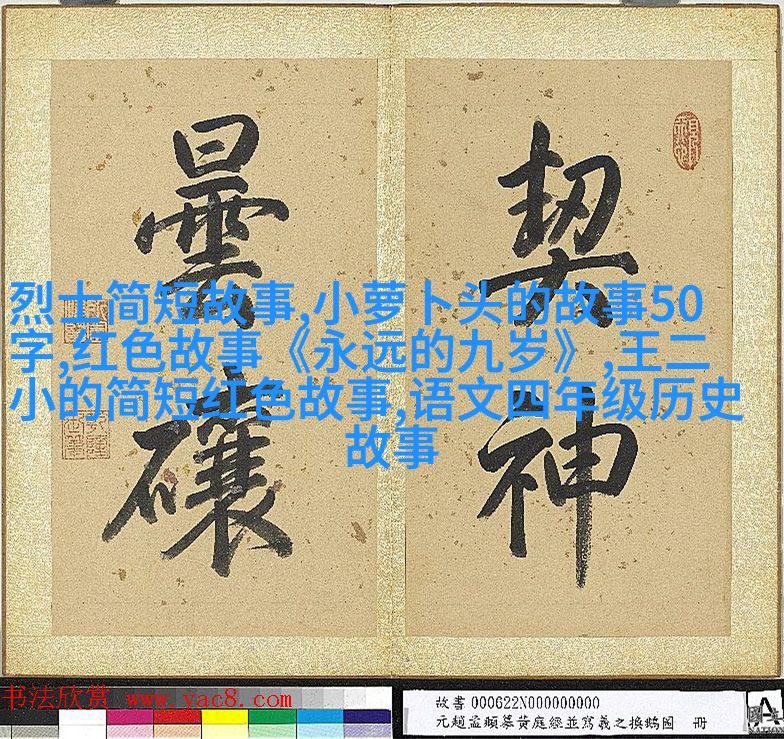 契神
曇
烈士简短故事,小萝卜头的故事50
字,红色故事《永远的九岁》,王二
小的简短红色故事,语文四年级历史
故事
书法欣赏 www.yac8.com
故書 000622N000000000
元趙孟頫摹黃庭經並寫羲之換鵝圖 冊